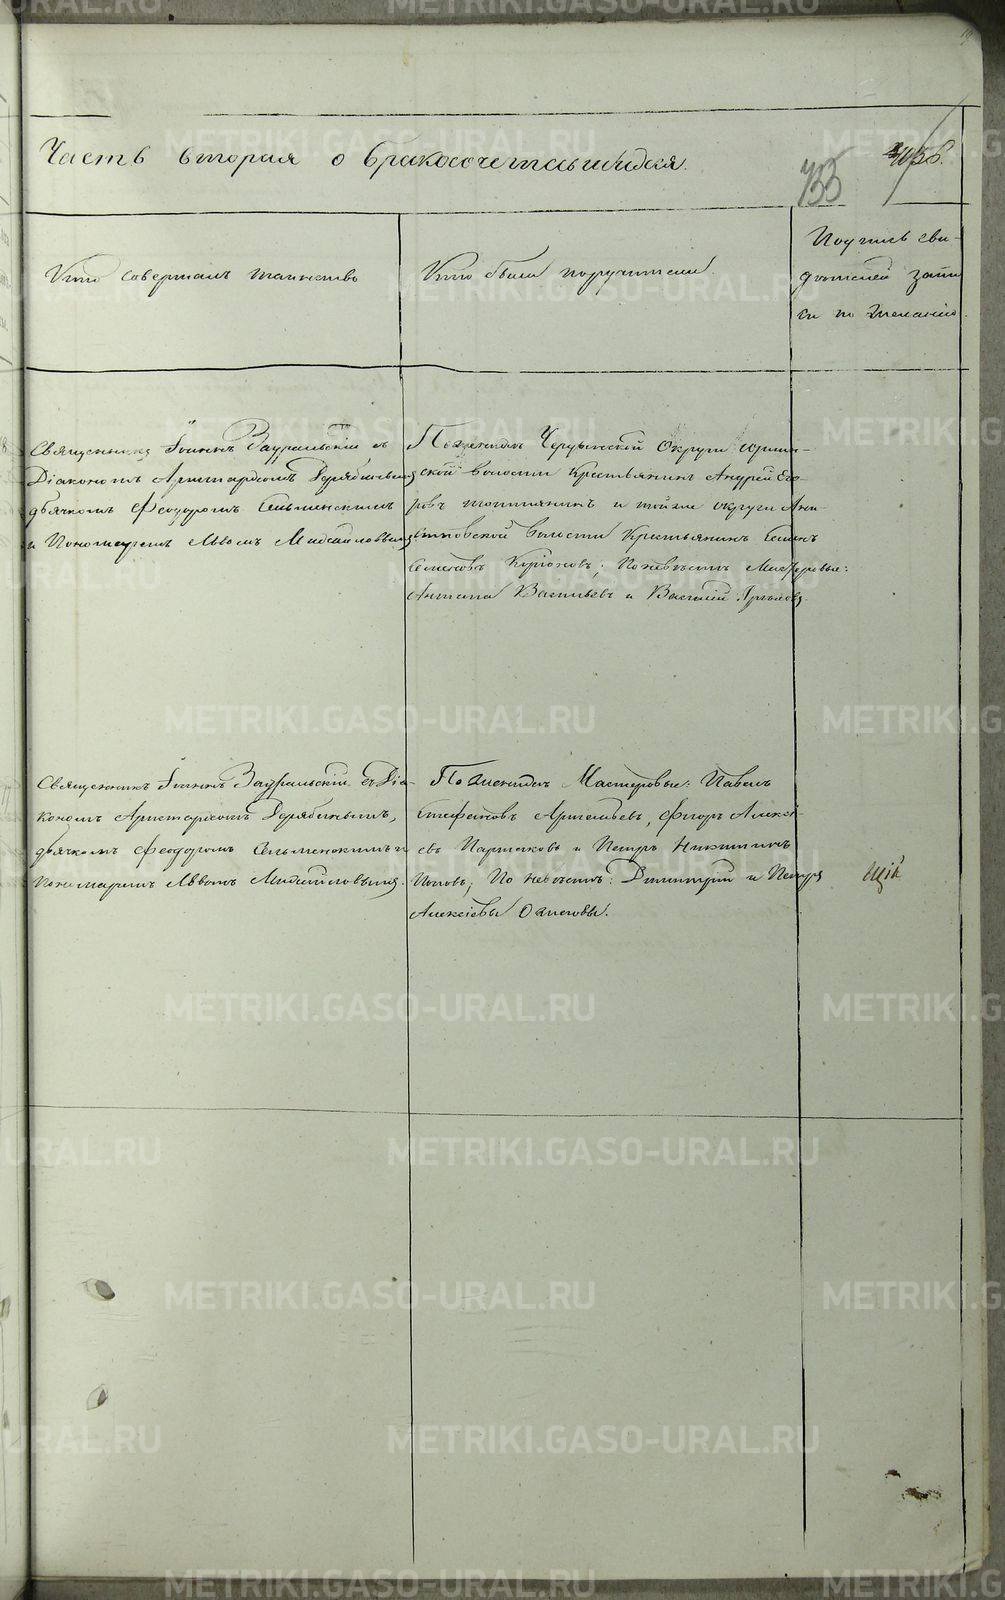 METRIKI.GASO-URAL.RU
Часть вторая о бракосочетавшихся.
755
Кто совершалъ таинство
Кто были поручители
Подпись сви-
дѣтелей запи
си по желанію.
Священникъ Іоаннъ Зауральскій съ
Діакономъ Аристархомъ Дерябинымъ
дьячкомъ Феодоромъ Сельменскимъ
и Пономаремъ Львомъ Михайловымъ
По женихѣ Чердынской Округи
ской волости Крестьянинъ Андрей Его
ровъ и той же округи
волости Крестьянинъ
Семеновъ; По невѣстѣ Мастеровые:
Антипа Васильевъ и Василій
Священникъ Іоаннъ Зауральскій съ Діа-
кономъ Аристархомъ Дерябинымъ,
дьячкомъ Феодоромъ Сельменскимъ и
Пономаремъ Львомъ Михайловымъ.
По женихѣ Мастеровые: Павелъ
Стефановъ, Ѳедоръ Алексѣ-
евъ и Петръ Никитинъ
Поповъ; По невѣстѣ: Димитрій и Петръ
Алексѣевы Ожеговы.
щій